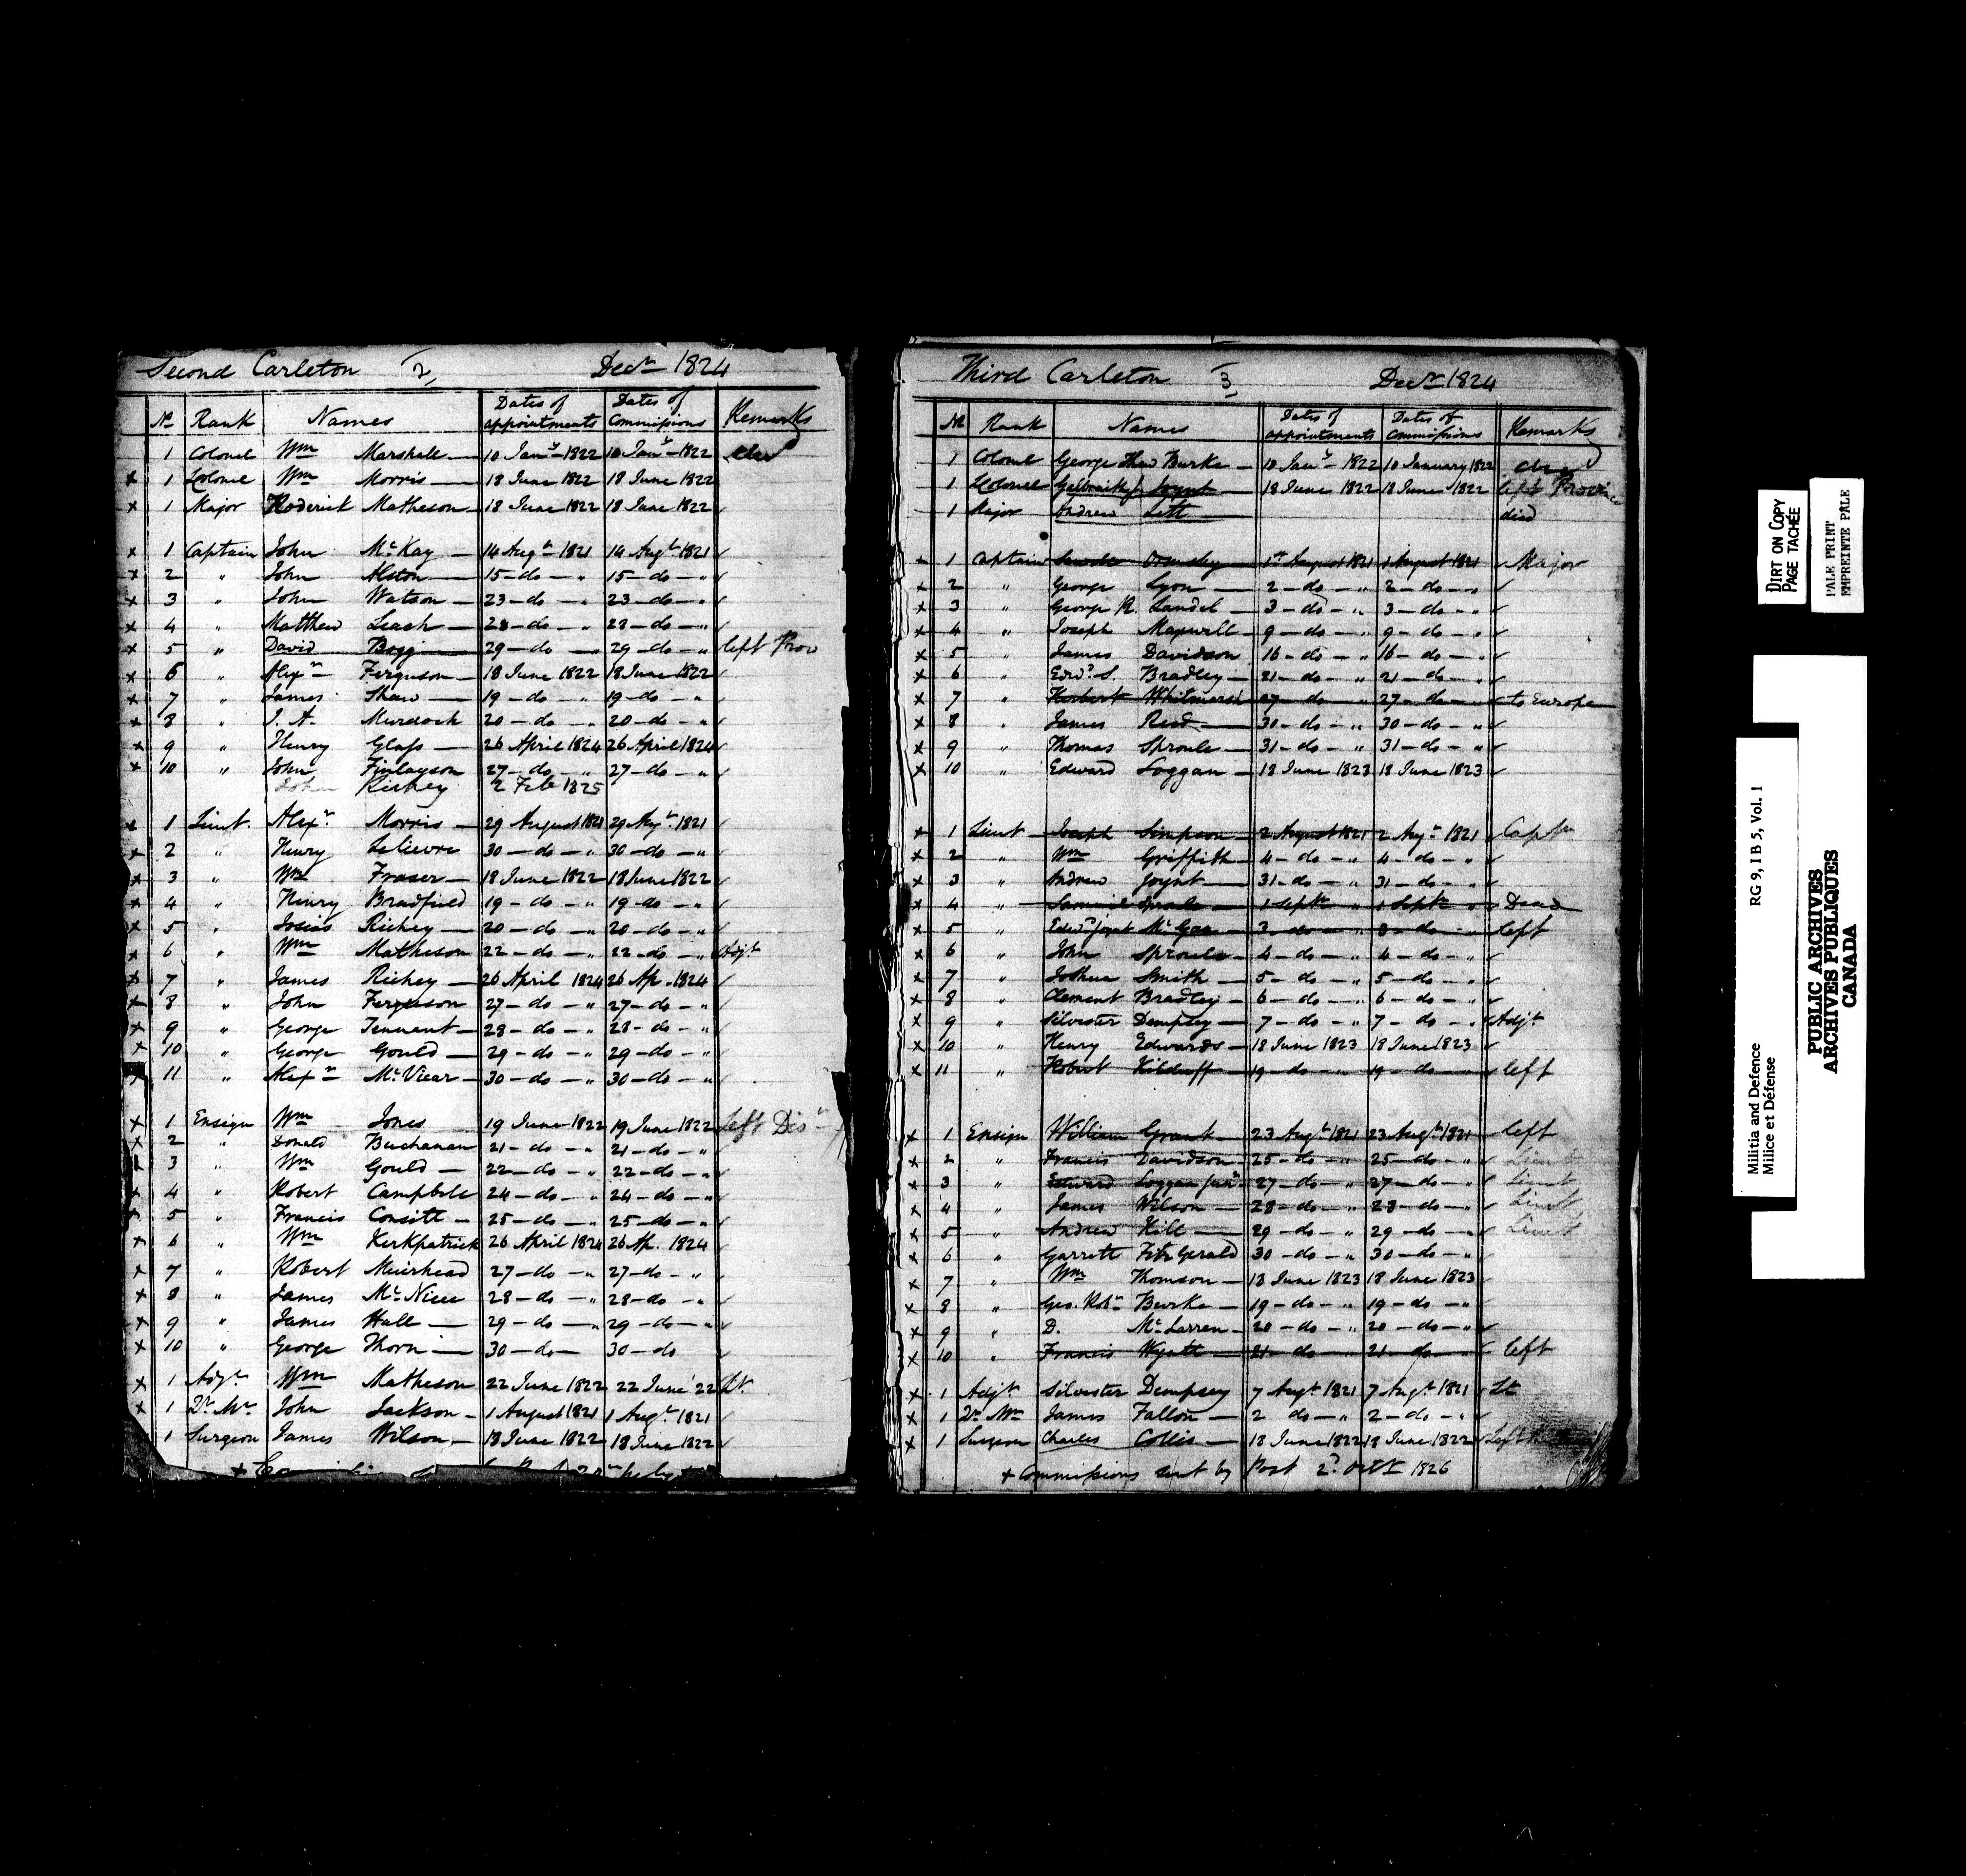 Second Carleton 2 Decr 1824
No Rank Names Dates of appointments Dates of Commissions Remarks
1 Colonel Wm Marshall — 10 Jany 1822 10 Jany 1822
x 1 Lt Colonel Wm Morris — 18 June 1822 18 June 1822
x 1 Major Roderick Matheson — 18 June 1822 18 June 1822
x 1 Captain John McKay — 14 Augt 1821 14 Augt 1821
x 2 " John Alston — 15 – do – " 15 – do – "
x 3 " John Watson — 23 – do – " 23 – do – "
x 4 " Matthew Leach — 28 – do – " 28 – do – "
x 5 " David Bogg — 29 – do – " 29 – do – " left Prov
x 6 " Alexr Ferguson — 18 June 1822 18 June 1822
x 7 " James Shaw — 19 – do – " 19 – do – "
x 8 " J. A. Murdoch 20 – do – " 20 – do – "
x 9 " Henry Glass — 26 April 1824 26 April 1824
x 10 " John Finlayson 27 – do – " 27 – do – "
John Richey 2 Feb 1825
x 1 Lieut. Alexr Morris — 29 August 1821 29 Augt 1821
x 2 " Henry Lelievre 30 – do – " 30 – do – "
x 3 " Wm Fraser — 18 June 1822 18 June 1822
x 4 " Henry Bradfield 19 – do – " 19 – do – "
x 5 " Josias Richey — 20 – do – " 20 – do – "
x 6 " Wm Matheson 22 – do – " 22 – do – " Adjt
x 7 " James Richey — 26 April 1824 26 Ap. 1824
x 8 " John Ferguson 27 – do – " 27 – do – "
x 9 " George Tennent — 28 – do – " 28 – do – "
x 10 " George Gould — 29 – do – " 29 – do – "
x 11 " Alexr McVicar — 30 – do – " 30 – do – "
x 1 Ensign Wm Jones 19 June 1822 19 June 1822 left Dist
x 2 " Donald Buchanan 21 – do – " 21 – do – "
3 " Wm Gould — 22 – do – " 22 – do – "
x 4 " Robert Campbell 24 – do – " 24 – do – "
x 5 " Francis Consitt — 25 – do – " 25 – do – "
x 6 " Wm Kirkpatrick 26 April 1824 26 Ap. 1824
x 7 " Robert Muirhead 27 – do – " 27 – do – "
x 8 " James McNiece 28 – do – " 28 – do – "
x 9 " James Hall — 29 – do – " 29 – do – "
x 10 " George Thom — 30 – do – 30 – do
x 1 Adjt Wm Matheson 22 June 1822 22 June 22 Lt.
x 1 Qr Mr John Jackson — 1 August 1821 1 Augt 1821
x 1 Surgeon James Wilson — 18 June 1822 18 June 1822
Third Carleton 3 Decr 1824
No Rank Names Dates of appointments Dates of Commissions Remarks
1 Colonel George Thew Burke — 10 Jany 1822 10 January 1822
1 Lt Colonel Joynt 18 June 1822 18 June 1822 left Province
1 Major Andrew Lett died
x 1 Captain Ormsby 1st August 1821 1 August 1821 Major
x 2 " George Lyon — 2 – do – " 2 – do – "
x 3 " George R. Landel — 3 – do – " 3 – do – "
x 4 " Joseph Maxwell — 9 – do – " 9 – do – "
x 5 " James Davidson 16 – do – " 16 – do – "
x 6 " Edwd S. Bradley — 21 – do – " 21 – do – "
x 7 " Herbert Whitmarsh 27 – do – " 27 – do – " to Europe
x 8 " James Reid — 30 – do – " 30 – do – "
x 9 " Thomas Sproule — 31 – do – " 31 – do – "
x 10 " Edward Loggan — 18 June 1823 18 June 1823
x 1 Lieut Joseph Simpson — 2 August 1821 2 Augt 1821 Captn
x 2 " Wm Griffith — 4 – do – " 4 – do – "
x 3 " Andrew Joynt — 31 – do – " 31 – do – "
x 4 " Samuel Sproule — 1 Septr " 1 Septr " Dead
x 5 " Edwd Joynt 3 – do – " 3 – do – " left
x 6 " John Sproule — 4 – do – " 4 – do – "
x 7 " Joshua Smith — 5 – do – " 5 – do – "
x 8 " Clement Bradley — 6 – do – " 6 – do – "
x 9 " Silvester Dempsey — 7 – do – " 7 – do – " Adjt
x 10 " Henry Edwards — 18 June 1823 18 June 1823
x 11 " Robert Kilduff — 19 – do – " 19 – do – " left
x 1 Ensign William Grant — 23 Augt 1821 23 Augt 1821 left
x 2 " Francis Davidson — 25 – do – " 25 – do – " Lieut
x 3 " Edward Loggan Junr 27 – do – " 27 – do – " Lieut
x 4 " James Wilson — 28 – do – " 28 – do – " Lieut
x 5 " Andrew Hill — 29 – do – " 29 – do – " Lieut
x 6 " Garrett FitzGerald 30 – do – " 30 – do – "
x 7 " Wm Thomson — 18 June 1823 18 June 1823
x 8 " Geo. Robt Burke — 19 – do – " 19 – do – "
x 9 " D. McLarren — 20 – do – " 20 – do – "
x 10 " Francis Wyatt — 21 – do – " 21 – do – " left
x 1 Adjt Silvester Dempsey 7 Augt 1821 7 Augt 1821 Lt
x 1 Qr Mr James Fallon — 2 do – " 2 – do – "
x 1 Surgeon Charles Collis — 18 June 1822 18 June 1822 Left
+ Commissions sent by Post 2d Octr 1826
DIRT ON COPY
PAGE TACHÉE
PALE PRINT
EMPREINTE PALE
Militia and Defence RG 9, I B 5, Vol. 1
Milice et Défense
PUBLIC ARCHIVES
ARCHIVES PUBLIQUES
CANADA